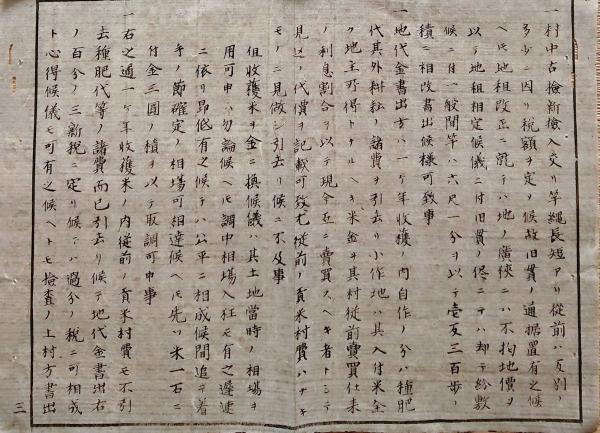 一村中古検新検入交リ竿縄長短アリ従前ハ反別ノ
多少ニ因リ税額ヲ定メ候故旧貫ノ通据置有之候
ヘ𪜈地租改正ニ就テハ地ノ廣狭ニハ不拘地價ヲ
以テ地租相定候儀ニ付旧貫ノ侭ニテハ却テ紛敷
候ニ付一般間竿ハ六尺一分ヲ以テ壱反三百歩ノ
積ニ相改書出候様可致事
一地代金書出方ハ一ケ年收穫ノ内自作ノ分ハ種肥
代其外耕耘ノ諸費ヲ引去リ小作地ハ其入付米金
ク地主所得トナルヘキ米金ヲ其村従前賣買仕来
ノ利息割合ヲ以テ現今互ニ賣買スヘキ者トシテ
見込ノ代價ヲ記載可致尤従前ノ貢米村費ハナキ
モノニ見做シ引去リ候ニ不及事
但收穫米ヲ金ニ換候儀ハ其土地當時ノ相場ヲ
用可申ハ勿論候ヘ𪜈調中相場入狂モ有之遅速
ニ依リ昂低有之候テハ公平ニ相成候間追テ着
手ノ節確定ノ相場可相達候ヘ𪜈先ツ米一石ニ
付金三圓ノ積ヲ以テ取調可申事
一右之通一ケ年收穫米ノ内従前ノ貢米村費モ不引
去種肥代等ノ諸費而已引去リ候テ地代金書出右
ノ百分ノ三新税ニ定リ候テハ過分ノ税ニ可相成
ト心得候儀モ可有之候ヘトモ検査ノ上村方書出
三